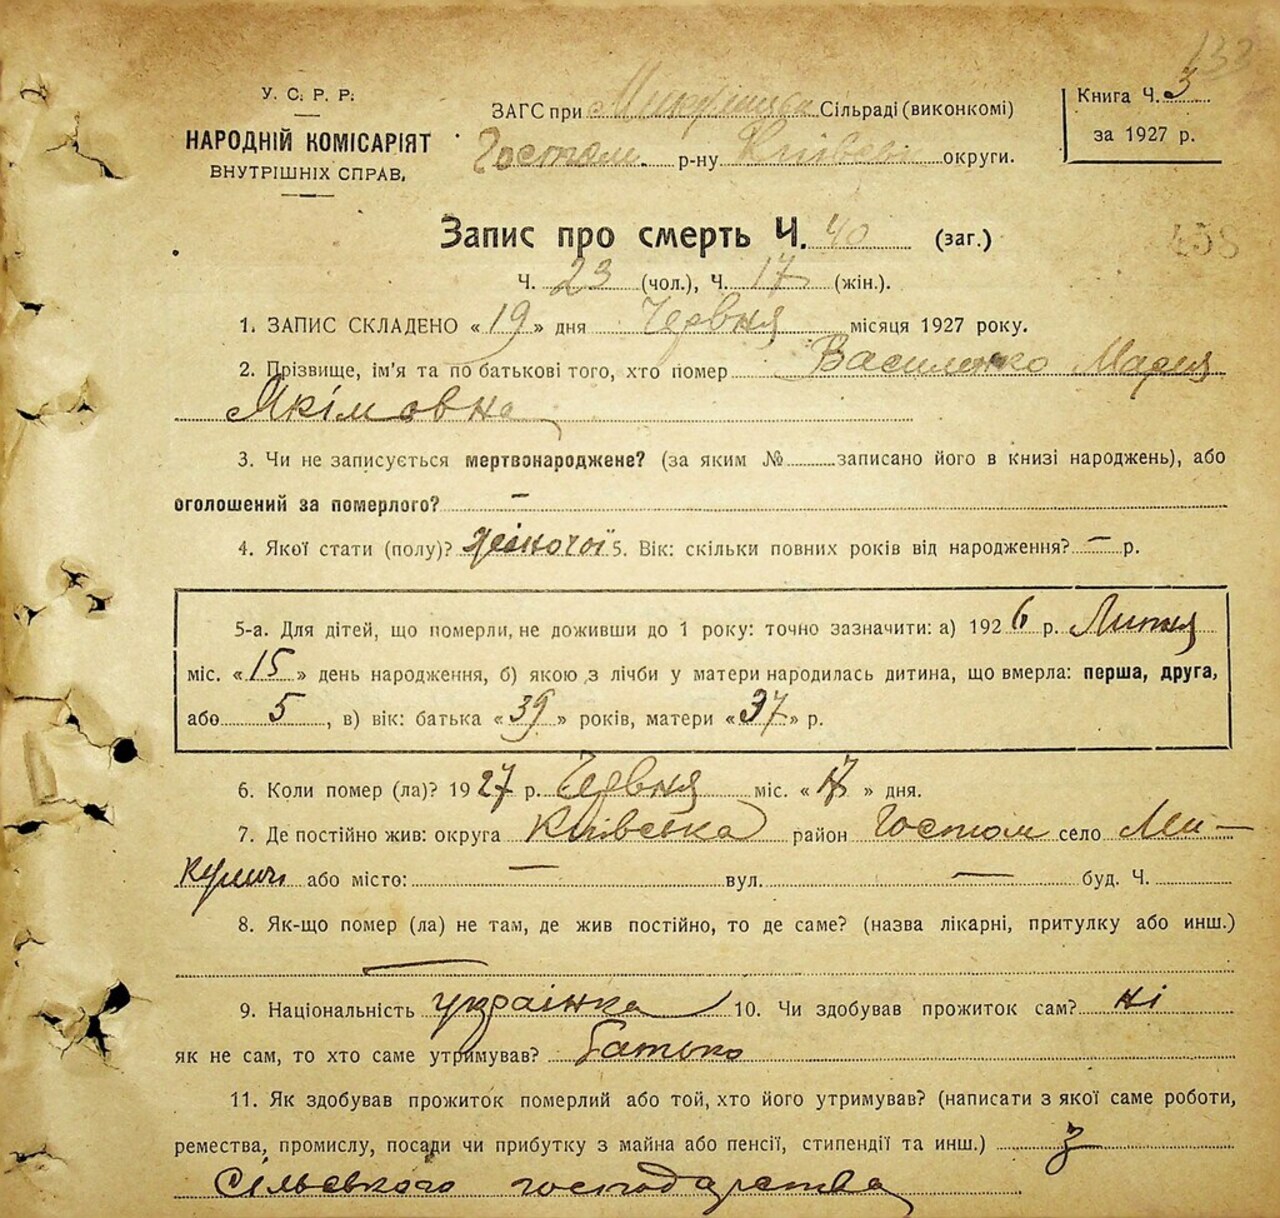 132
У. С. Р. Р.
НАРОДНІЙ КОМІСАРІЯТ
ВНУТРІШНІХ СПРАВ.
ЗАГС при Сільраді (виконкомі)
Гостом. р-ну Київсь округи.
Книга Ч. 3
за 1927 р.
Запис про смерть Ч. 40 (заг.)
458
Ч. 23 (чол.), Ч. 17 (жін.).
1. ЗАПИС СКЛАДЕНО « 19 » дня Червня місяця 1927 року.
2. Прізвище, ім'я та по батькові того, хто помер Василенко Мария
Якімовна
3. Чи не записується мертвонароджене? (за яким № записано його в книзі народжень), або
оголошений за померлого? –
4. Якої стати (полу)? жіночої 5. Вік: скільки повних років від народження? – р.
5-а. Для дітей, що померли, не доживши до 1 року: точно зазначити: а) 1926 р. Липня
міс. « 15 » день народження, б) якою з лічби у матери народилась дитина, що вмерла: перша, друга,
або 5 , в) вік: батька « 39 » років, матери « 37 » р.
6. Коли помер (ла)? 1927 р. Червня міс. « 17 » дня.
7. Де постійно жив: округа Київська район Гостом село Ми-
куличі або місто: – вул. – буд. Ч.
8. Як-що помер (ла) не там, де жив постійно, то де саме? (назва лікарні, притулку або инш.)
–
9. Національність українка 10. Чи здобував прожиток сам? ні
як не сам, то хто саме утримував? батько
11. Як здобував прожиток померлий або той, хто його утримував? (написати з якої саме роботи,
ремества, промислу, посади чи прибутку з майна або пенсії, стипендії та инш.) з
сільського господарства